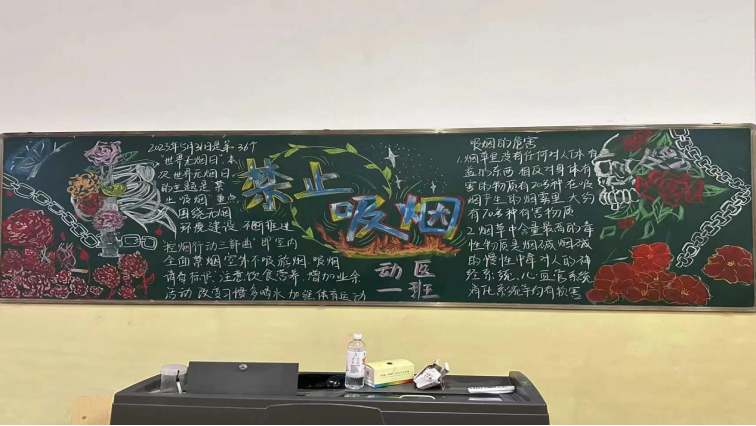 2023年5月31日是第36个
"世界无烟日"，本
次世界无烟日
的主题是禁
止吸烟 重点
围绕无烟
环境建设 不断推进
控烟行动三部曲"即室内
全面禁烟 室外不吸游烟 吸烟
请看标识.注意饮食营养,增加业余
活动 改变习惯 多喝水 加强体育运动
禁止
吸烟
动医
一班
吸烟的危害
1.烟草里没有任何对人体有
益的东西 相反对身体有
害的物质有20多种在吸
烟产生的烟雾里大约
有70多种有害物质
2.烟草中含量最高的毒
性物质是烟碱 烟碱
的慢性中毒对人的神
经系统、心血管系统
消化系统等均有损害